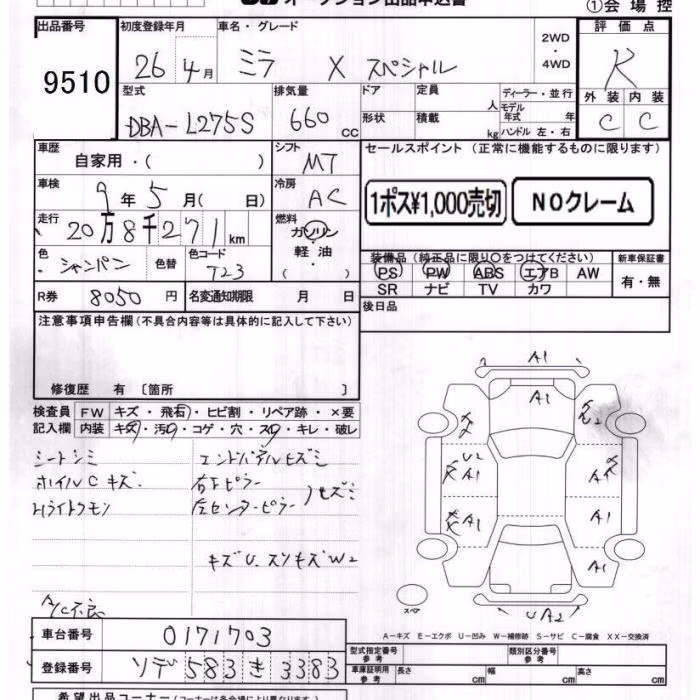 オークション出品申込書
①会場控
出品番号 初度登録年月 車名・グレード 2WD・4WD 評価点
9510 26年4月 ミラ X スペシャル R
型式 排気量 ドア 定員 人 ディーラー・並行 外装 内装
DBA-L275S 660cc 形状 積載 kg モデル年式 年 ハンドル 左・右 C C
車歴 自家用・( ) シフト MT セールスポイント (正常に機能するものに限ります)
車検 9年5月( 日) 冷房 AC 1ポス¥1,000売切 NOクレーム
走行 20万8千271km 燃料 ガソリン・軽油・
色 シャンパン 色替 色コード T23 装備品 (純正品に限り○をつけてください) 新車保証書
PS PW ABS エアB AW 有・無
SR ナビ TV カワ
R券 8050円 名変通知期限 月 日 後日品
注意事項申告欄(不具合内容等は具体的に記入して下さい)
修復歴 有 〔箇所 〕
検査員 FW キズ・飛石・ヒビ割・リペア跡・×要
記入欄 内装 キズ・汚・コゲ・穴・スレ・キレ・破レ
シートシミ
ホイルCキズ
Hライトクモリ
エンドパネルキズミ
右Fピラー
左センターピラー
キズミ
キズU. スソキズW2
A/C不良
A1
A1
U2
A1 A1
A1 A1
A1
UA2
スペア
A-キズ E-エクボ U-凹み W-補修跡 S-サビ C-腐食 XX-交換済
車台番号 0171703 型式指定番号 参考 類別区分番号 参考
登録番号 ソデ 583 き 3383 車庫証明用 参考 長さ cm 幅 cm 高さ cm
希望出品コーナー